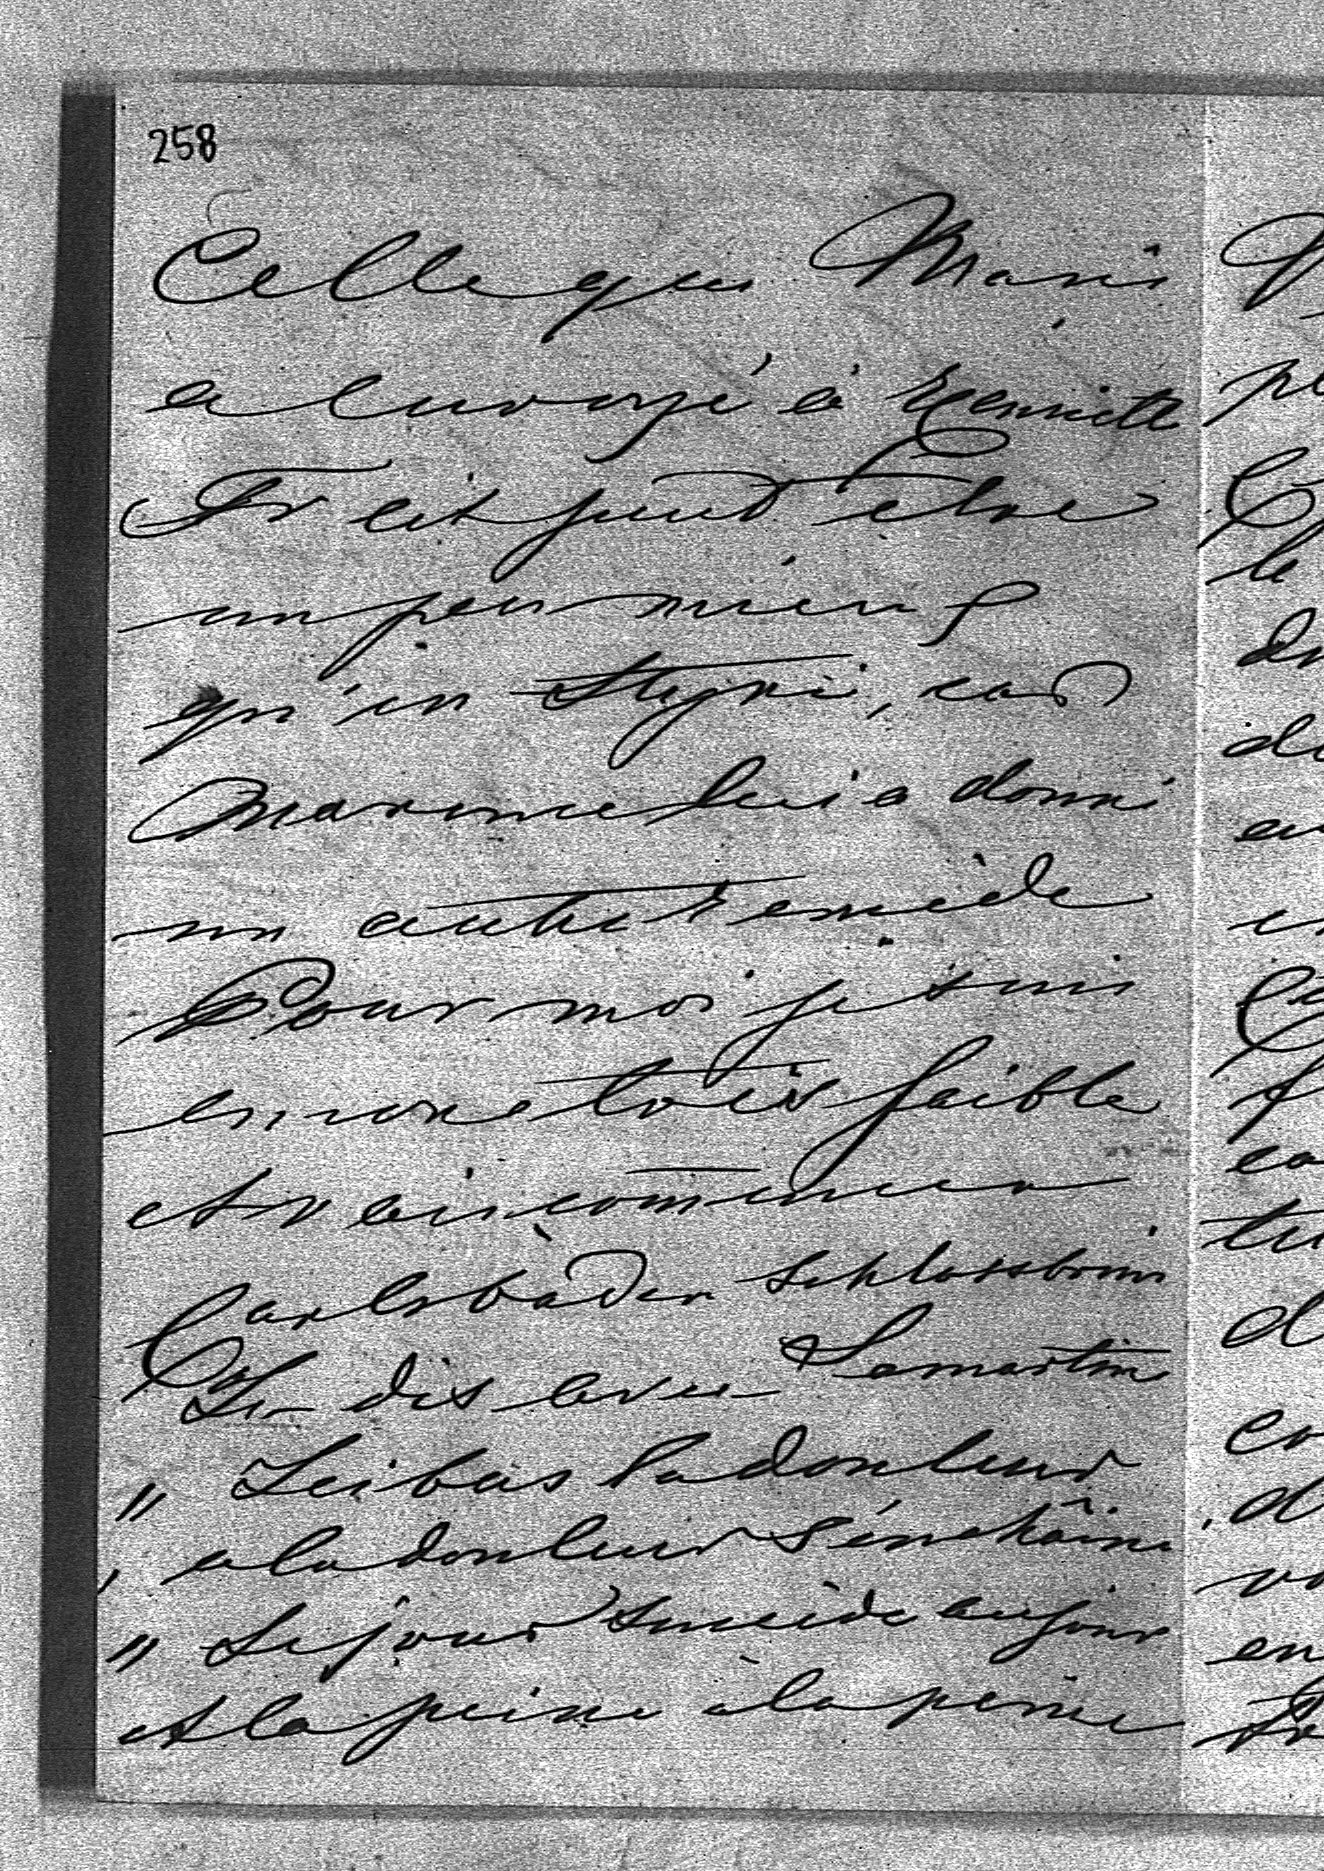 258
Celle que Marie
a envoyé à Henriette
Fr est peut être
un peu mieux
qu'en Styrie, car
Maxime lui a donné
un autre remède
Pour moi je suis
encore très faible
et vais commencer
Carlsbader Schlossbrun
Je dis avec Lamartine
" Ici bas la douleur
, a la douleur s'enchâine
" Le jour succède au jour
et la peine à la peine